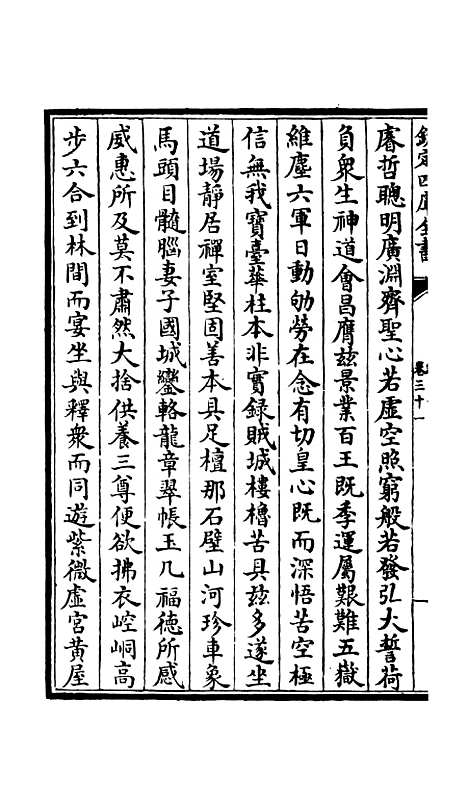 欽定四庫全書
卷三十一
睿哲聰明廣淵齊聖心若虛空照窮般若發弘大誓荷
負衆生神道會昌膺兹景業百王既季運屬艱難五嶽
維塵六軍日動劬勞在念有切皇心既而深悟苦空極
信無我寳臺華柱本非實録賊城樓櫓苦具兹多遂坐
道場靜居禪室堅固善本具足檀那石壁山河珍車象
馬頭目髓腦妻子國城鑾輅龍章翠帳玉几福德所感
威惠所及莫不肅然大捨供養三尊便欲拂衣崆峒高
步六合到林間而宴坐與釋衆而同遊紫微虛宮黄屋